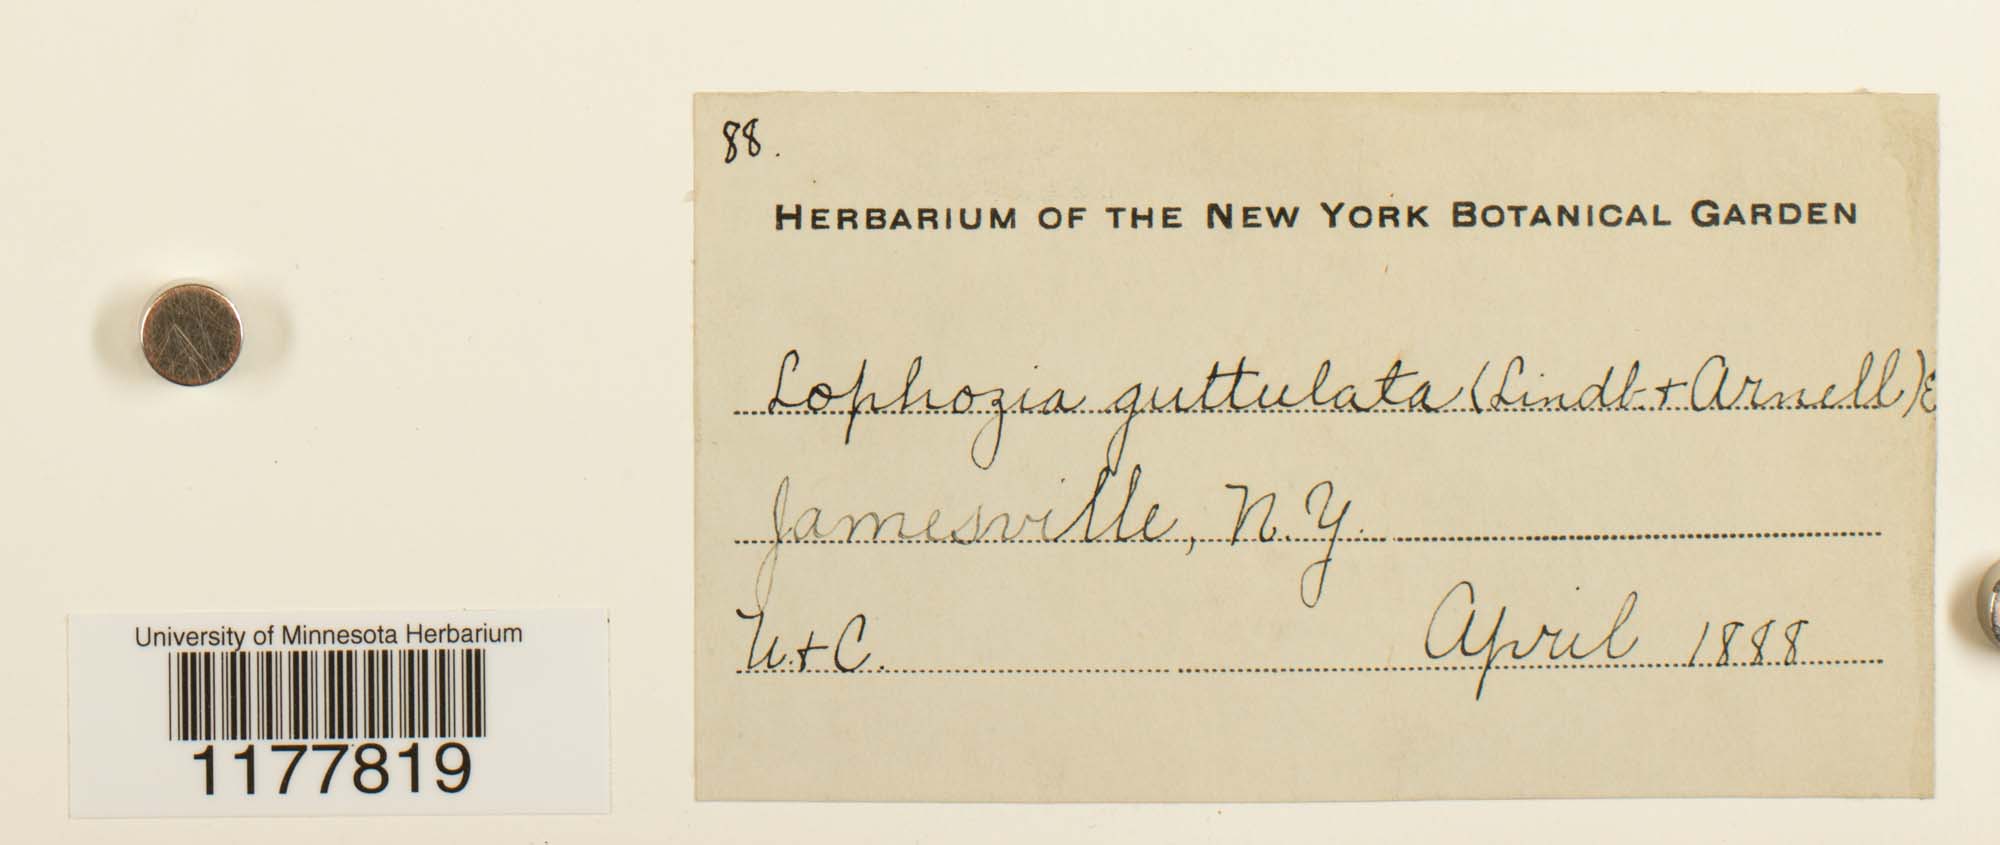 88.
HERBARIUM OF THE NEW YORK BOTANICAL GARDEN
Lophozia guttulata (Lindb. + Arnell) E
Jamesville, N.Y.
U. + C.
April 1888
University of Minnesota Herbarium
1177819